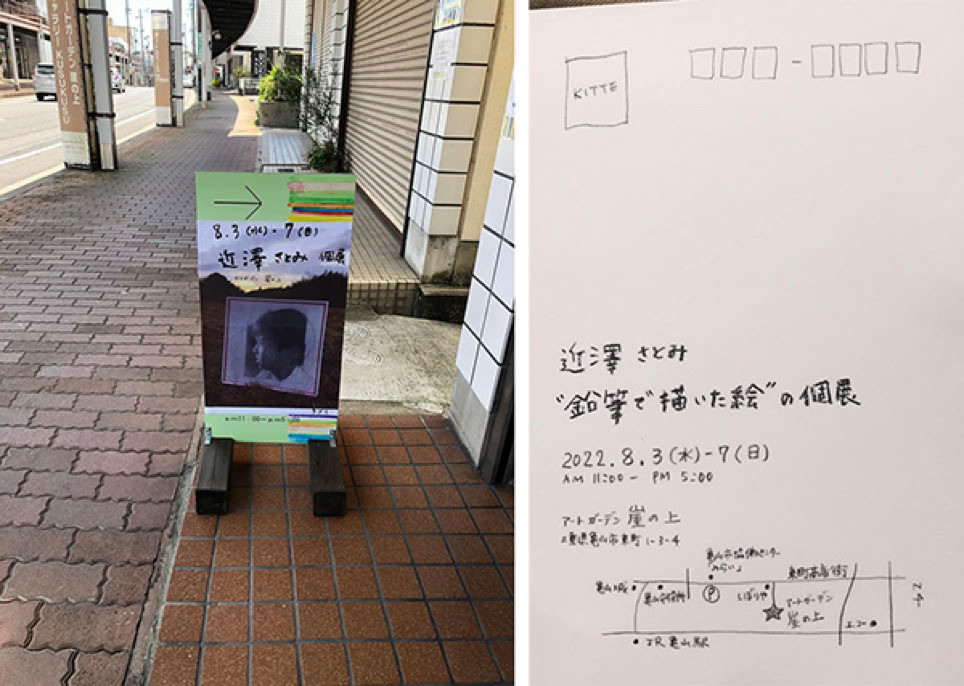 アートガーデン 崖の上
KUSUKUSU
8.3(水)-7(日)
近澤 さとみ 個展
アートガーデン 崖の上
am11:00-pm5:00
KITTE
近澤 さとみ
"鉛筆で描いた絵"の個展
2022.8.3(水)-7(日)
AM 11:00 - PM 5:00
アートガーデン 崖の上
三重県亀山市東町 1-3-4
亀山市協働センター
「みらい」
東町商店街
亀山城
亀山市役所
P
しばりや
アートガーデン
崖の上
エコー
JR亀山駅